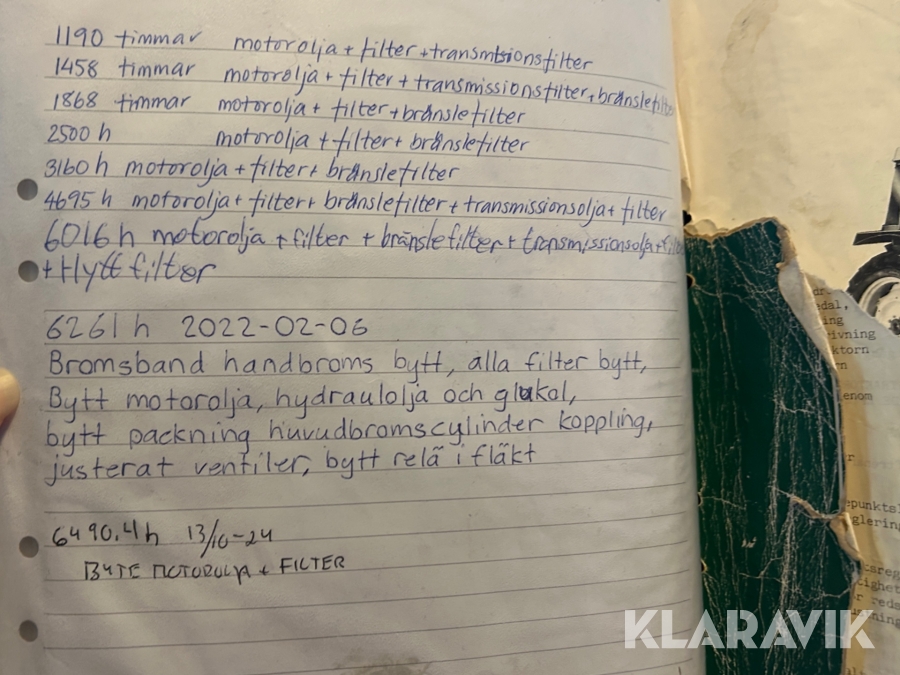 1190 timmar motorolja + filter + transmissionsfilter
1458 timmar motorolja + filter + transmissionsfilter + bränslefilter
1868 timmar motorolja + filter + bränslefilter
2500 h motorolja + filter + bränslefilter
3160 h motorolja + filter + bränslefilter
4695 h motorolja + filter + bränslefilter + transmissionsolja + filter
6016 h motorolja + filter + bränslefilter + transmissionsolja + filter
+ Hytt filter
6261 h 2022-02-06
Bromsband handbroms bytt, alla filter bytt,
Bytt motorolja, hydraulolja och glukol,
bytt packning huvudbromscylinder koppling,
justerat ventiler, bytt relä i fläkt
6490.4h 13/10-24
BYTE MOTOROLJA + FILTER
edal,
ing
ivning
ktorn
enom
epunktsl
glering
tsreg
tighet
r reds
KLARAVIK